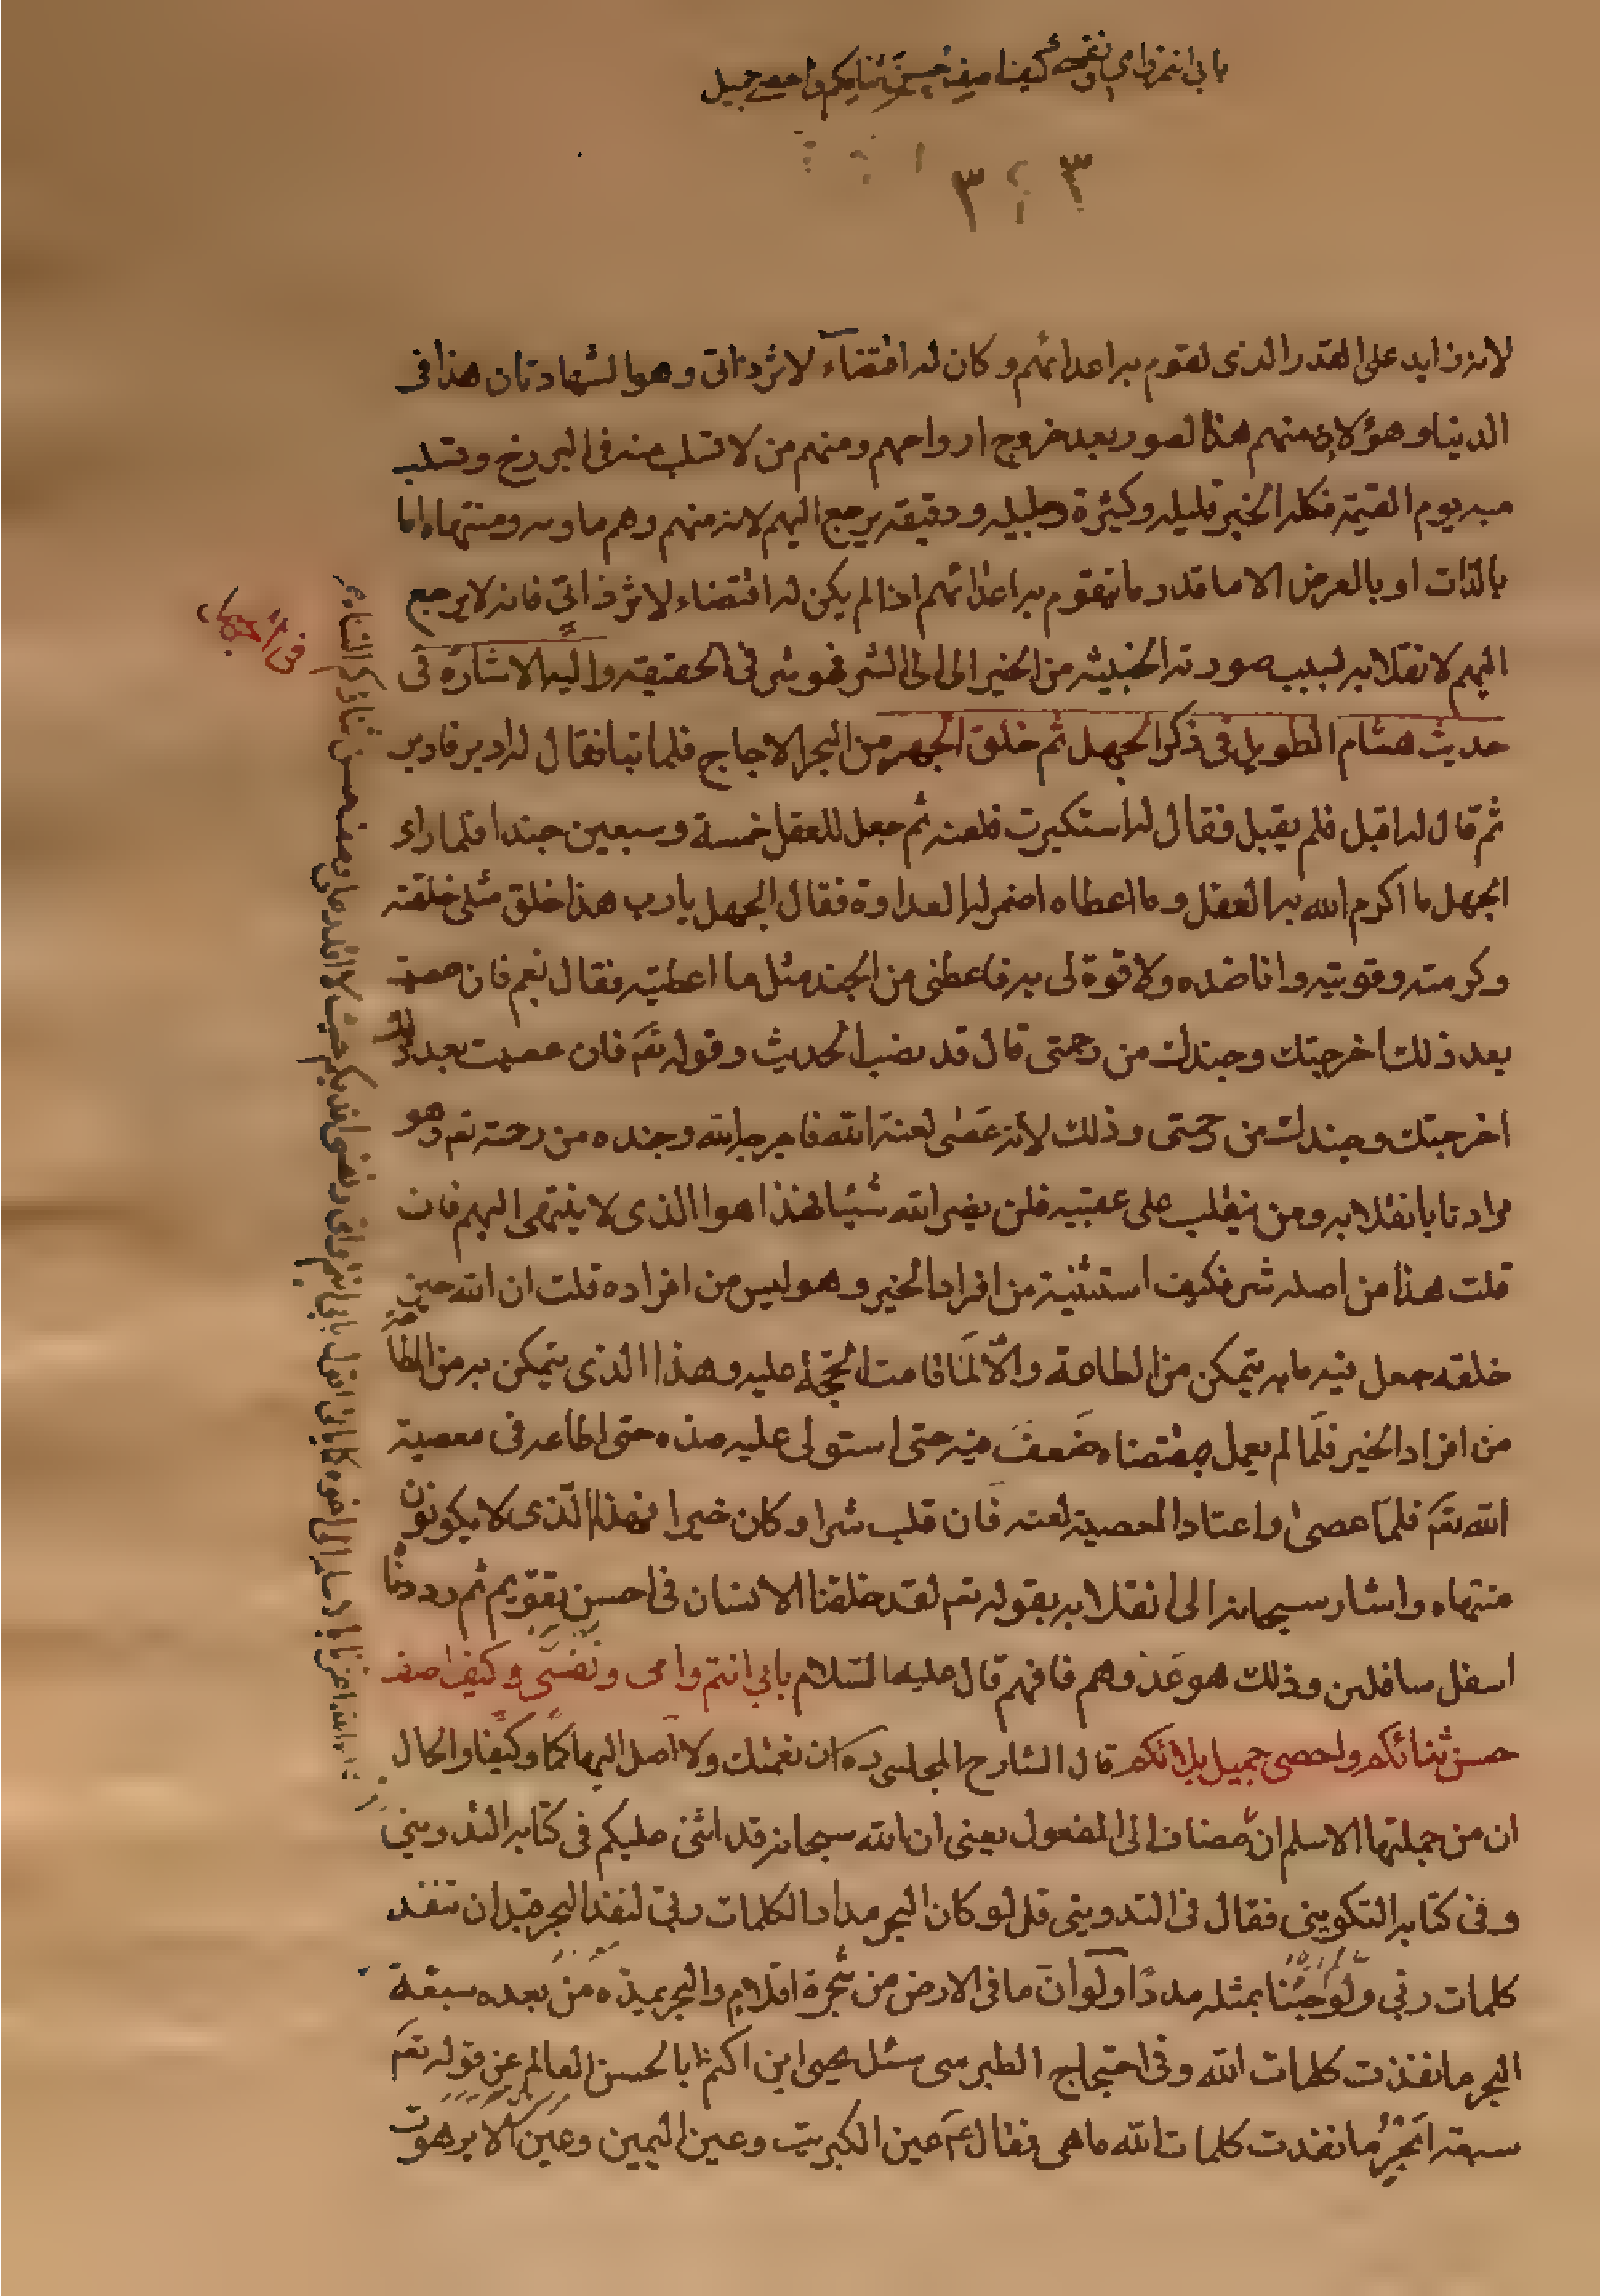 بابي انتم وامي ونفسي كيف اصف حسن ثنائكم واحصي جميل
٣ ٣
لانه زايد على القدر الذى تقوم به اعدائهم وكان له اقتضاء لاثر ذاتى وهو الشهادتان هذا فى
الدنيا وهؤلاء منهم هذا لصور بعد خروج ارواحهم ومنهم من لا تسلب منه فى البرزخ وتسلب
منه يوم القيمة فكله الخير قليله وكثيرة وجليله ودقيقه يرجع اليهم لانه منهم وهم ماويه ومنتهاه اما
بالذات او بالعرض الا ما قدر ما تقوم به اعدائهم اذا لم يكن له اقتضاء لاثر ذاتى فانه لا يرجع
اليهم لانقلابه بسبب صورته الخبيثه من الخير الى الى الشر فهو شر فى الحقيقه واليه الاشارة فى
حديث هشام الطويل فى ذكر الجهل ثم خلق الجهل من البحر الاجاج فلما تبا فقال له ادبر فادبر
ثم قال له اقبل فلم يقبل فقال له استكبرت فلعنه ثم جعل للعقل خمسة وسبعين جندا فلما راء
الجهل ما اكرم الله به العقل وما اعطاه اضمر له العداوة فقال الجهل يا رب هذا خلق مثلى خلقته
وكرمته وقويته وانا ضده ولا قوة لى به فاعطنى من الجند مثل ما اعطيته فقال نعم فان عصيت
بعد ذلك اخرجتك وجندك من رحمتى قال قد رضيت الحديث وقوله تعم فان عصيت بعد ذلك
اخرجتك وجندك من رحمتى وذلك لانه عصى لعنة الله فاخرجه الله وجنده من رحمته تعم وهو
مرادنا بانقلابه ومن ينقلب على عقبيه فلن يضر الله شيئا فهذا هو الذى لا ينتهى اليهم فان
قلت هذا من اصله شر فكيف استثنيته من افراد الخير وهو ليس من افراده قلت ان الله حين
خلقه جعل فيه ما به يتمكن من الطاعة والّا لما قامت الحجة عليه وهذا الذى يتمكن به من الطاعة
من افراد الخير فلمّا لم يعمل بمقتضاه ضعف فيه حتى استولى عليه ضده حتى اطاعه فى معصية
الله تعم فلمّا عصى واعتاد المعصية لعنه فان قلب شرا وكان خيرا فهذا الّذى لا يكونون
منتهاه واشار سبحانه الى انقلابه بقوله تعم لقد خلقنا الانسان فى احسن تقويم ثم رددناه
اسفل سافلين وذلك هو عدوهم فافهم قال عليه السلام بابي انتم وامى ونفسى وكيف اصف
حسن ثنائكم واحصى جميل بلائكم قال الشارح المجلسى ره ان نعمتك ولا اصل اليها كمّا وكيفا والحال
ان من جملتها الاسلم انّ مضاف الى المفعول يعنى ان الله سبحانه قد اثنى عليكم فى كتابه التدوينى
وفى كتابه التكوينى فقال فى التدوينى قل لو كان البحر مدادا لكلمات ربى لنفد البحر قبل ان تنفد
كلمات ربى ولو جئنا بمثله مددا ولو انّ ما فى الارض من شجرة اقلام والبحر يمده من بعده سبعة
ابحر ما نفدت كلمات الله وفى احتجاج الطبرسى سئل يحيى ابن اكثم ابا الحسن العالم عن قوله تعم
سبعة ابحر ما نفدت كلمات الله ما هى فقال عم عين الكبريت وعين اليمين وعين البرهوت